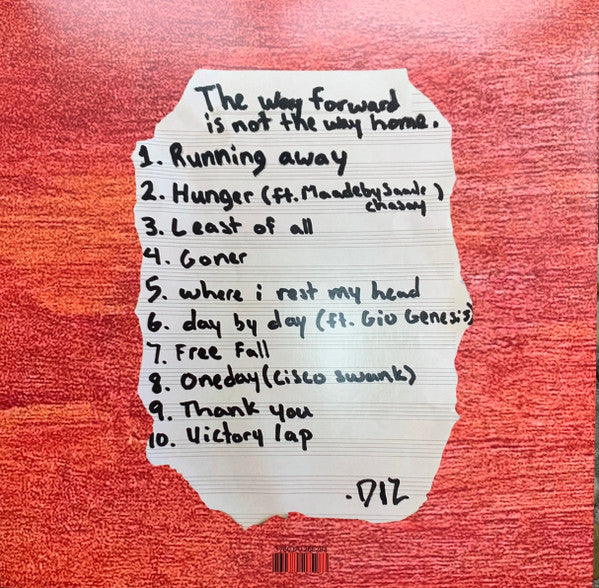 The way forward
is not the way home.
1. Running away
2. Hunger (ft. MaadebySaade )
chasay
3. Least of all
4. Goner
5. where i rest my head
6. day by day (ft. Gio Genesis)
7. Free Fall
8. Oneday (Cisco swank)
9. Thank you
10. Victory lap
.DIZ